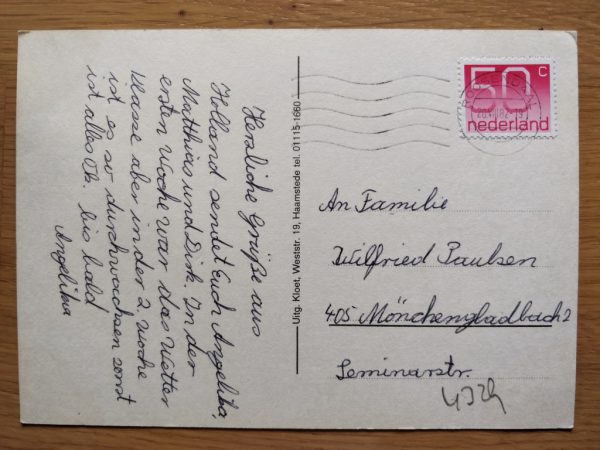 Herzliche Grüße aus
Holland sendet Euch Angelika,
Matthias und Dirk. In der
ersten Woche war das Wetter
klasse aber in der 2. Woche
ist es so durchwachsen sonst
ist alles Ok. bis bald
Angelika
Uitg. Kloet, Weststr. 19, Haamstede tel. 01115-1660
50 c
nederland
An Familie
Wilfried Paulsen
405 Mönchengladbach 2
Seminarstr.